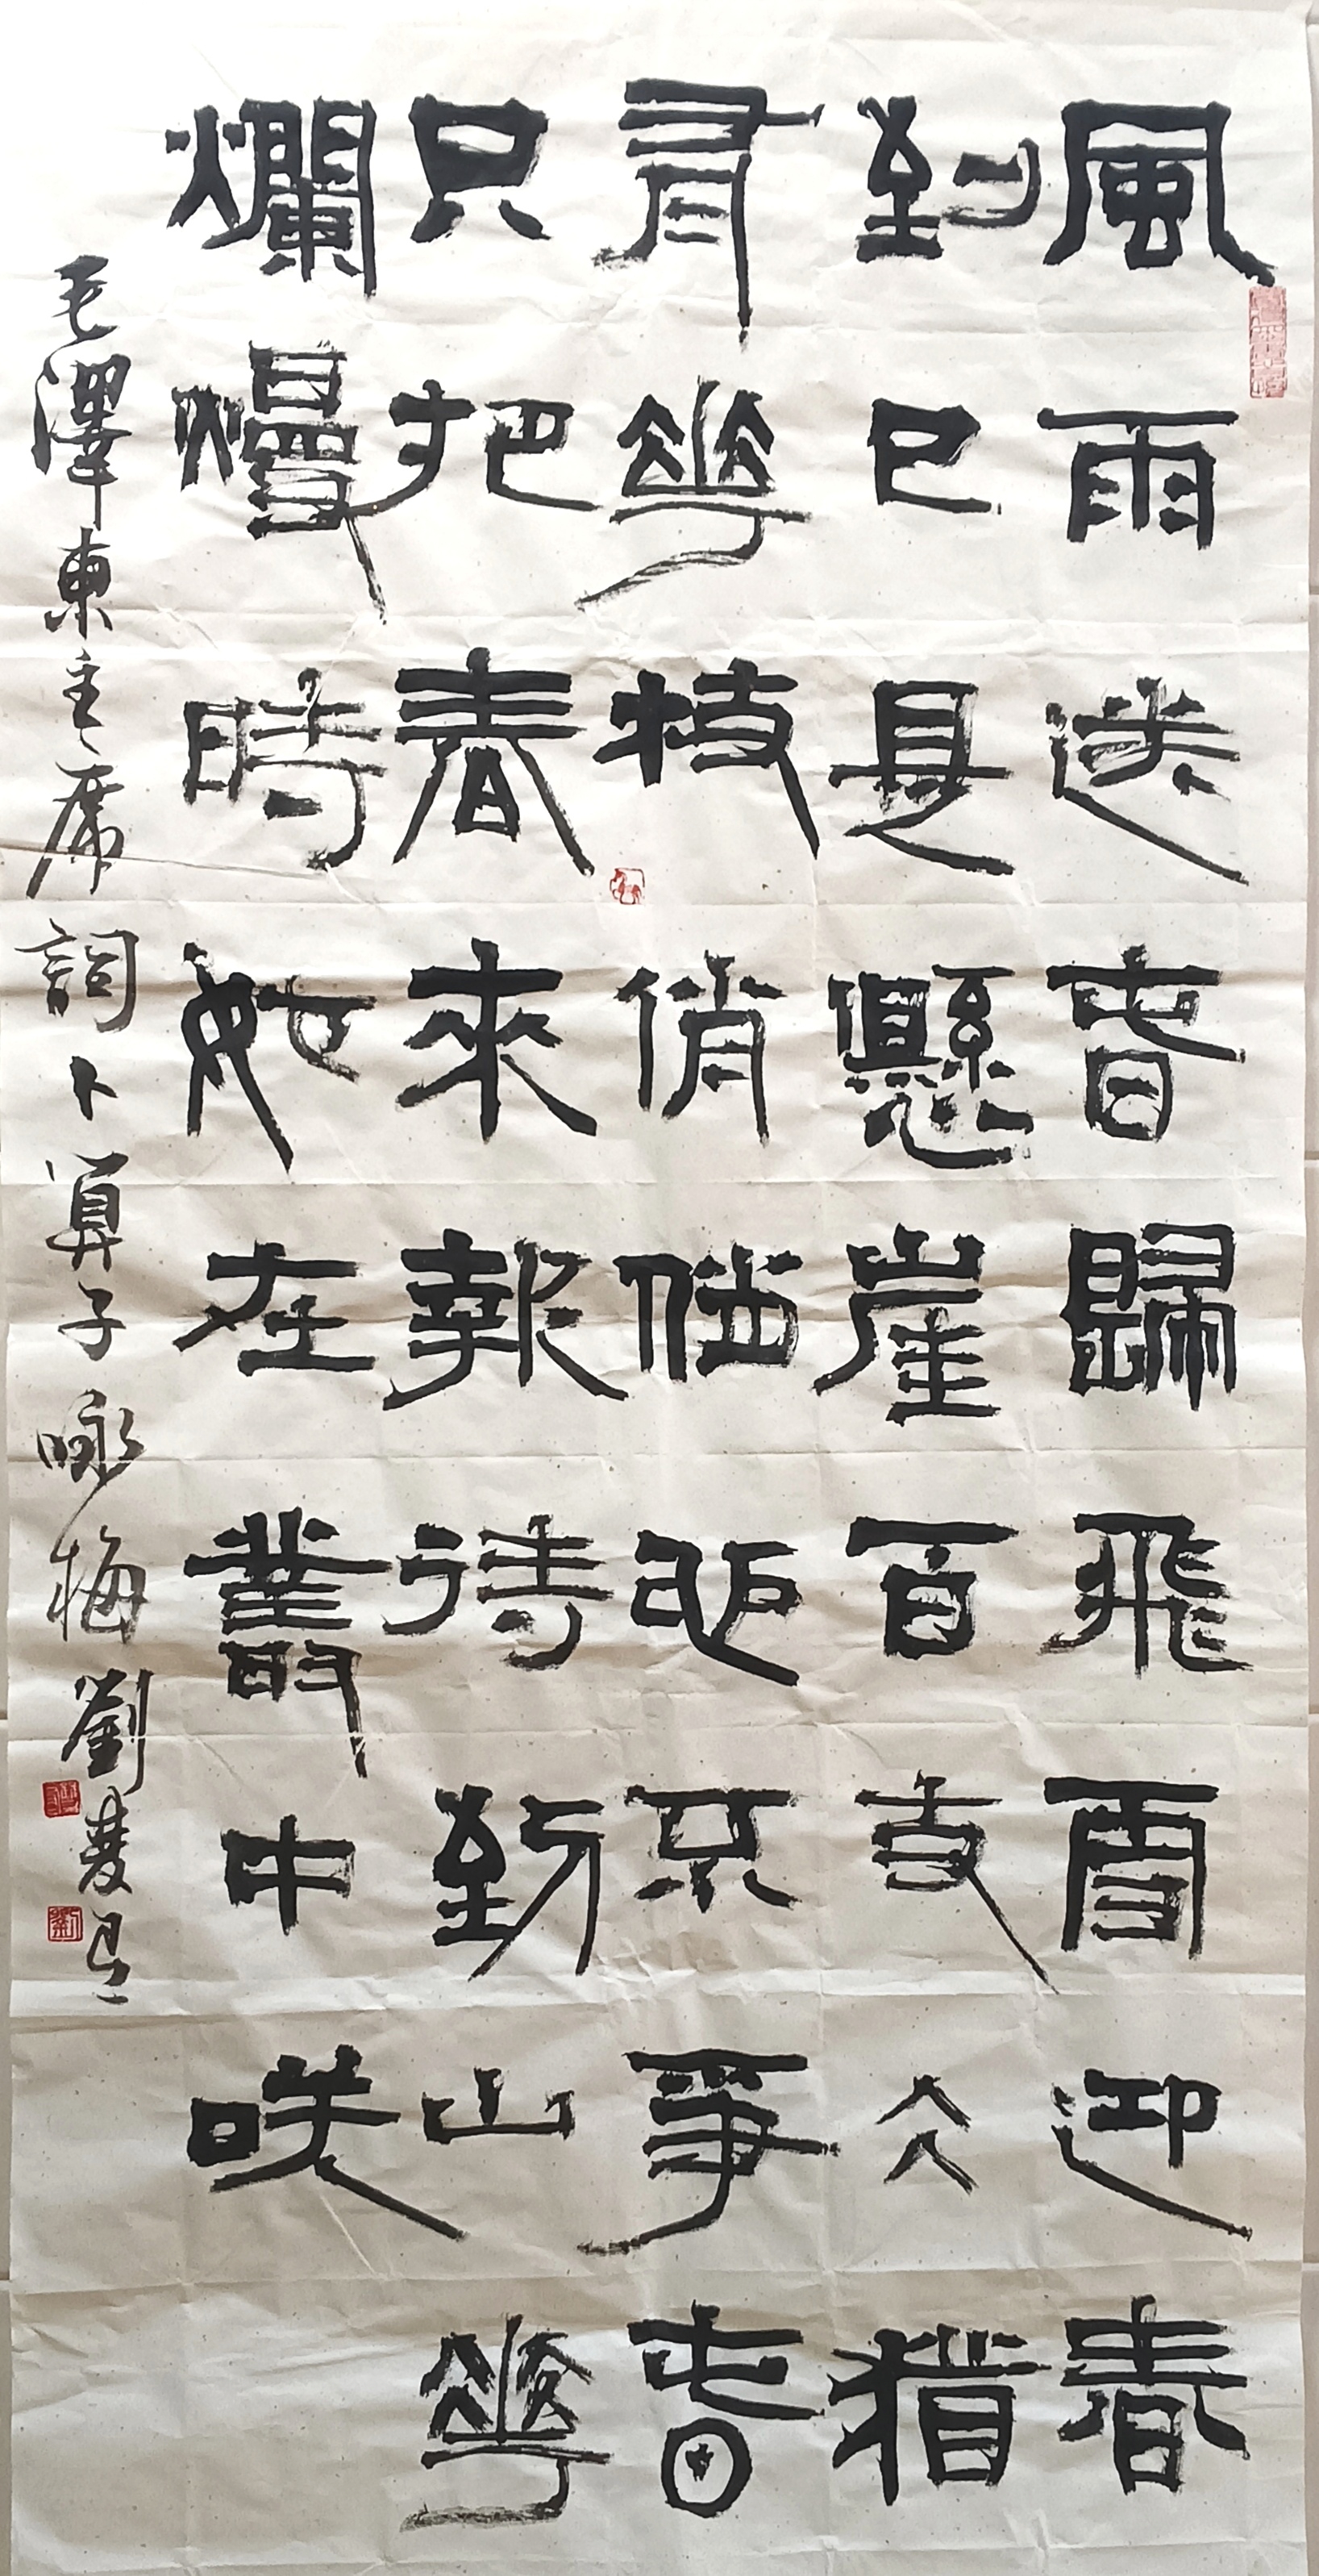 風雨送春歸飛雪迎春
到已是懸崖百丈冰猶
有花枝俏俏也不爭春
只把春來報待到山花
爛熳時她在叢中咲
毛澤東主席詞卜算子咏梅劉